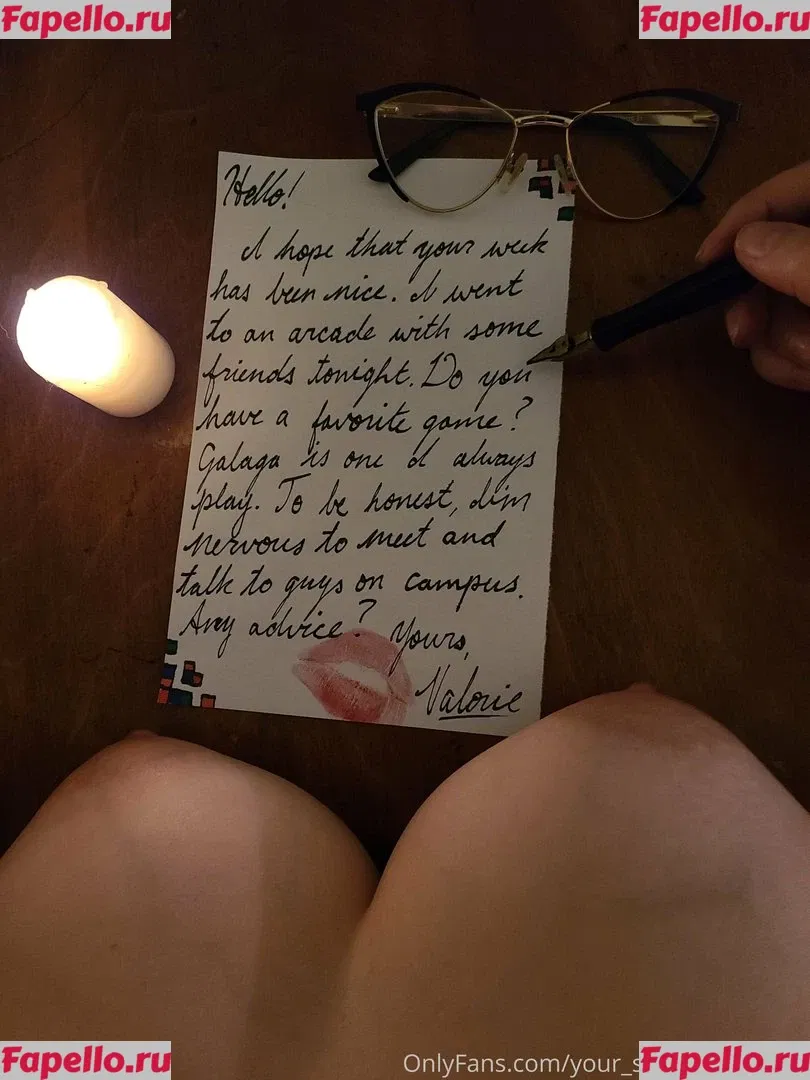 Fapello.ru
Fapello.ru
Hello!
I hope that your week
has been nice. I went
to an arcade with some
friends tonight. Do you
have a favorite game?
Galaga is one I always
play. To be honest, I'm
nervous to meet and
talk to guys on campus.
Any advice?
Yours,
Valorie
Fapello.ru
OnlyFans.com/your_s
Fapello.ru